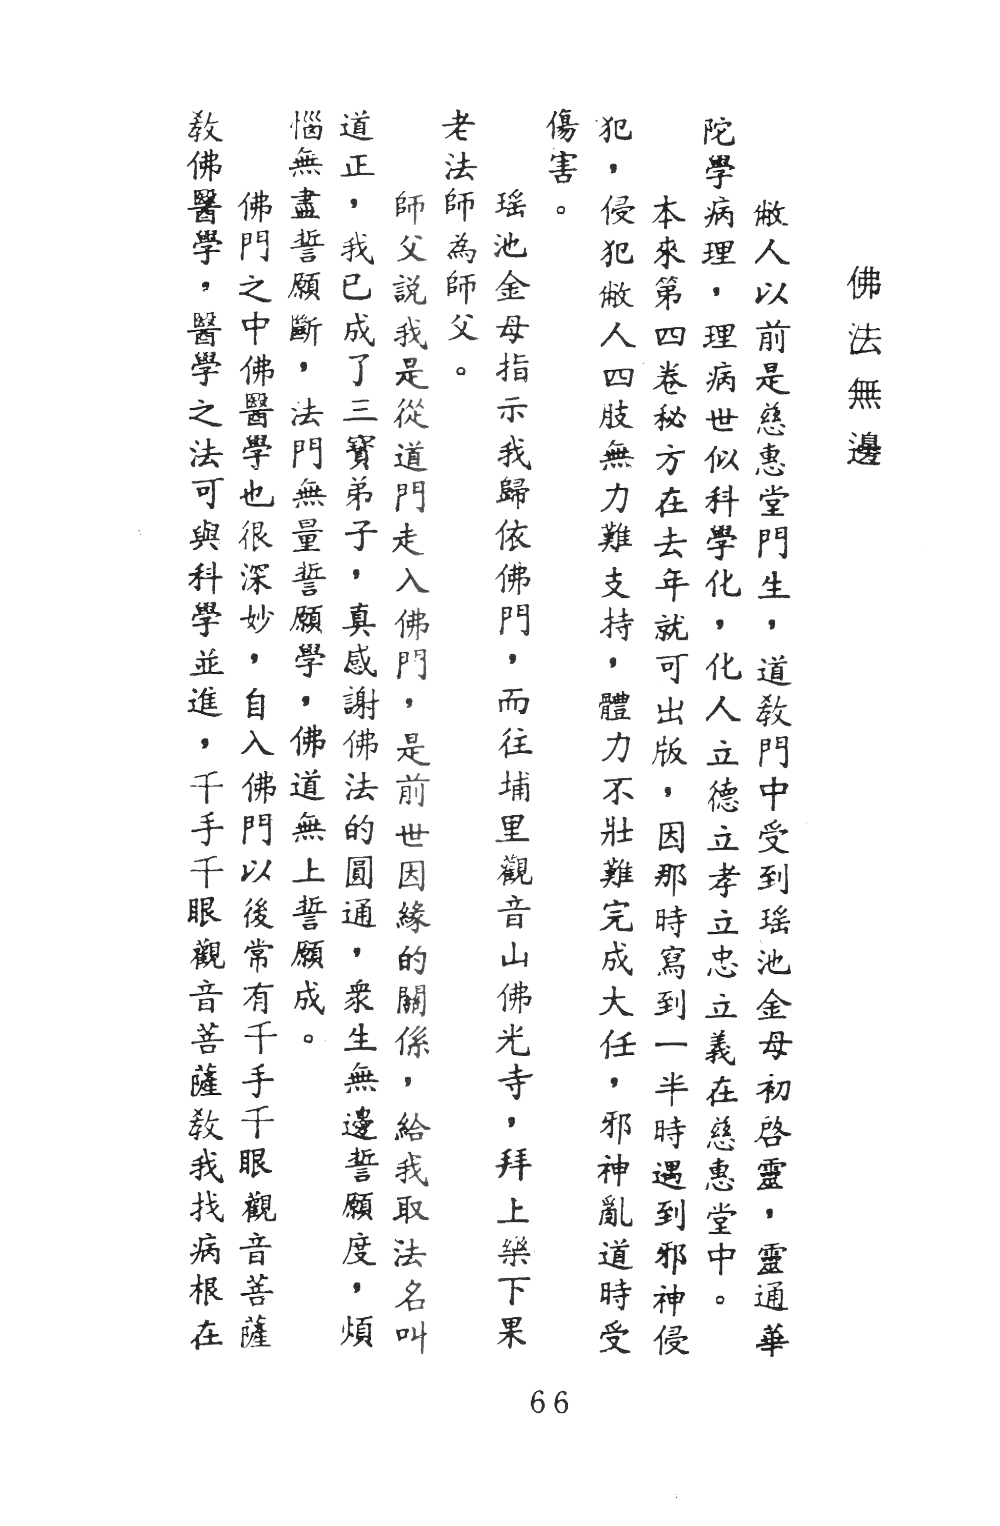 佛法無邊
敝人以前是慈惠堂門生，道教門中受到瑤池金母初啓靈，靈通華
陀學病理，理病世似科學化，化人立德立孝立忠立義在慈惠堂中。
本來第四卷秘方在去年就可出版，因那時寫到一半時遇到邪神侵
犯，侵犯敝人四肢無力難支持，體力不壯難完成大任，邪神亂道時受
傷害。
瑤池金母指示我歸依佛門，而往埔里觀音山佛光寺，拜上樂下果
老法師為師父。
師父説我是從道門走入佛門，是前世因緣的關係，給我取法名叫
道正，我已成了三寶弟子，真感謝佛法的圓通，衆生無邊誓願度，煩
惱無盡誓願斷，法門無量誓願學，佛道無上誓願成。
佛門之中佛醫學也很深妙，自入佛門以後常有千手千眼觀音菩薩
教佛醫學，醫學之法可與科學並進，千手千眼觀音菩薩教我找病根在
66